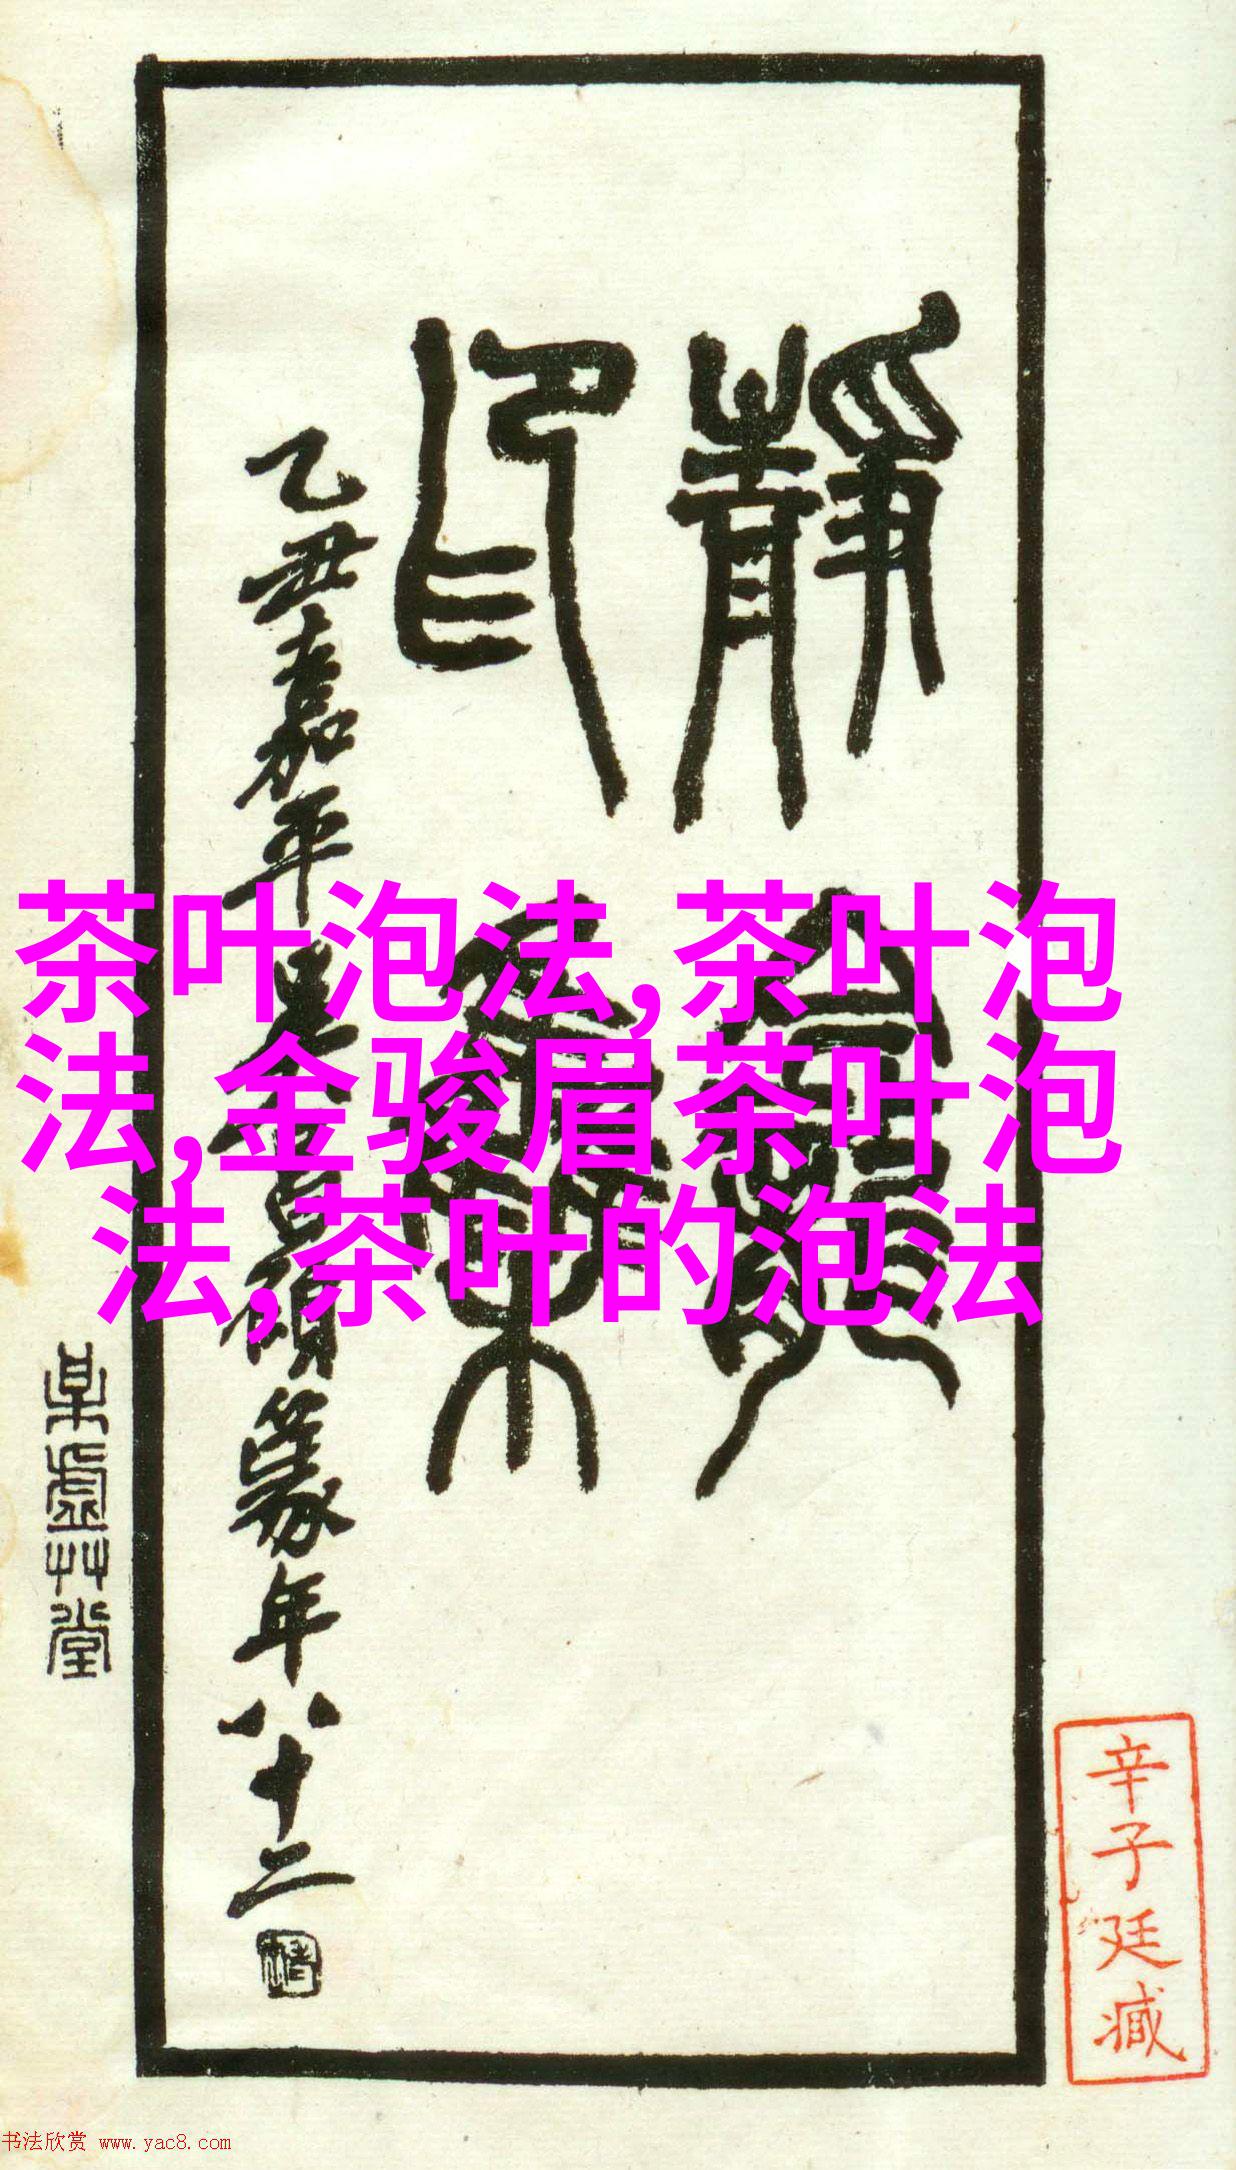 靜龕
印集
乙丑嘉平吳昌碩篆年八十二
某虛艸堂
辛子廷臧
茶叶泡法,茶叶泡
法,金骏眉茶叶泡
法,茶叶的泡法
书法欣赏 www.yac8.com